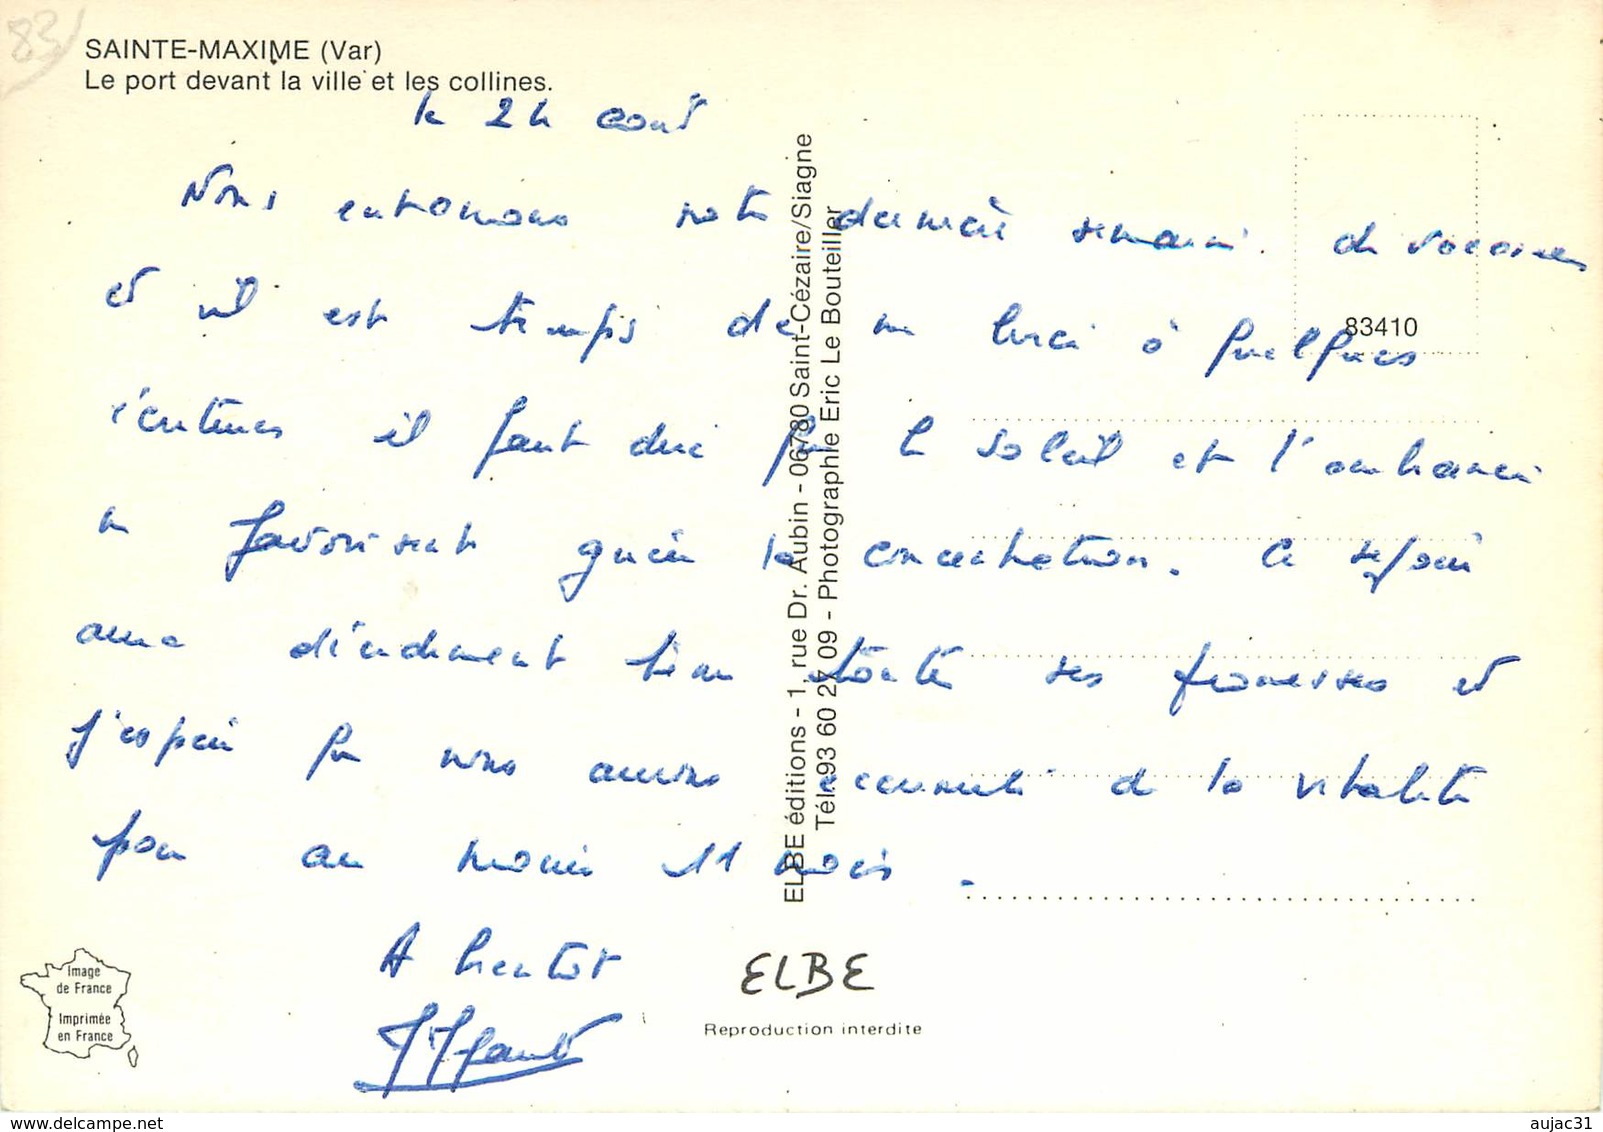 83
SAINTE-MAXIME (Var)
Le port devant la ville et les collines.
le 24 août
Nous entamons notre dernière semaine de vacances
et il est temps de
à quelques
il faut dire que le soleil et l'ambiance
ne favorisent guère la concentration. Ce séjour
aura tenu toute ses promesses et
j'espère que nous aurons accumulé de la vitalité
pour au moins 11 mois.
A bientôt
83410
ELBE éditions - 1, rue Dr. Aubin - 06780 Saint-Cézaire/Siagne
Tél. 93 60 27 09 - Photographie Eric Le Bouteiller
Image
de France
Imprimée
en France
ELBE
Reproduction interdite
www.delcampe.net
aujac31